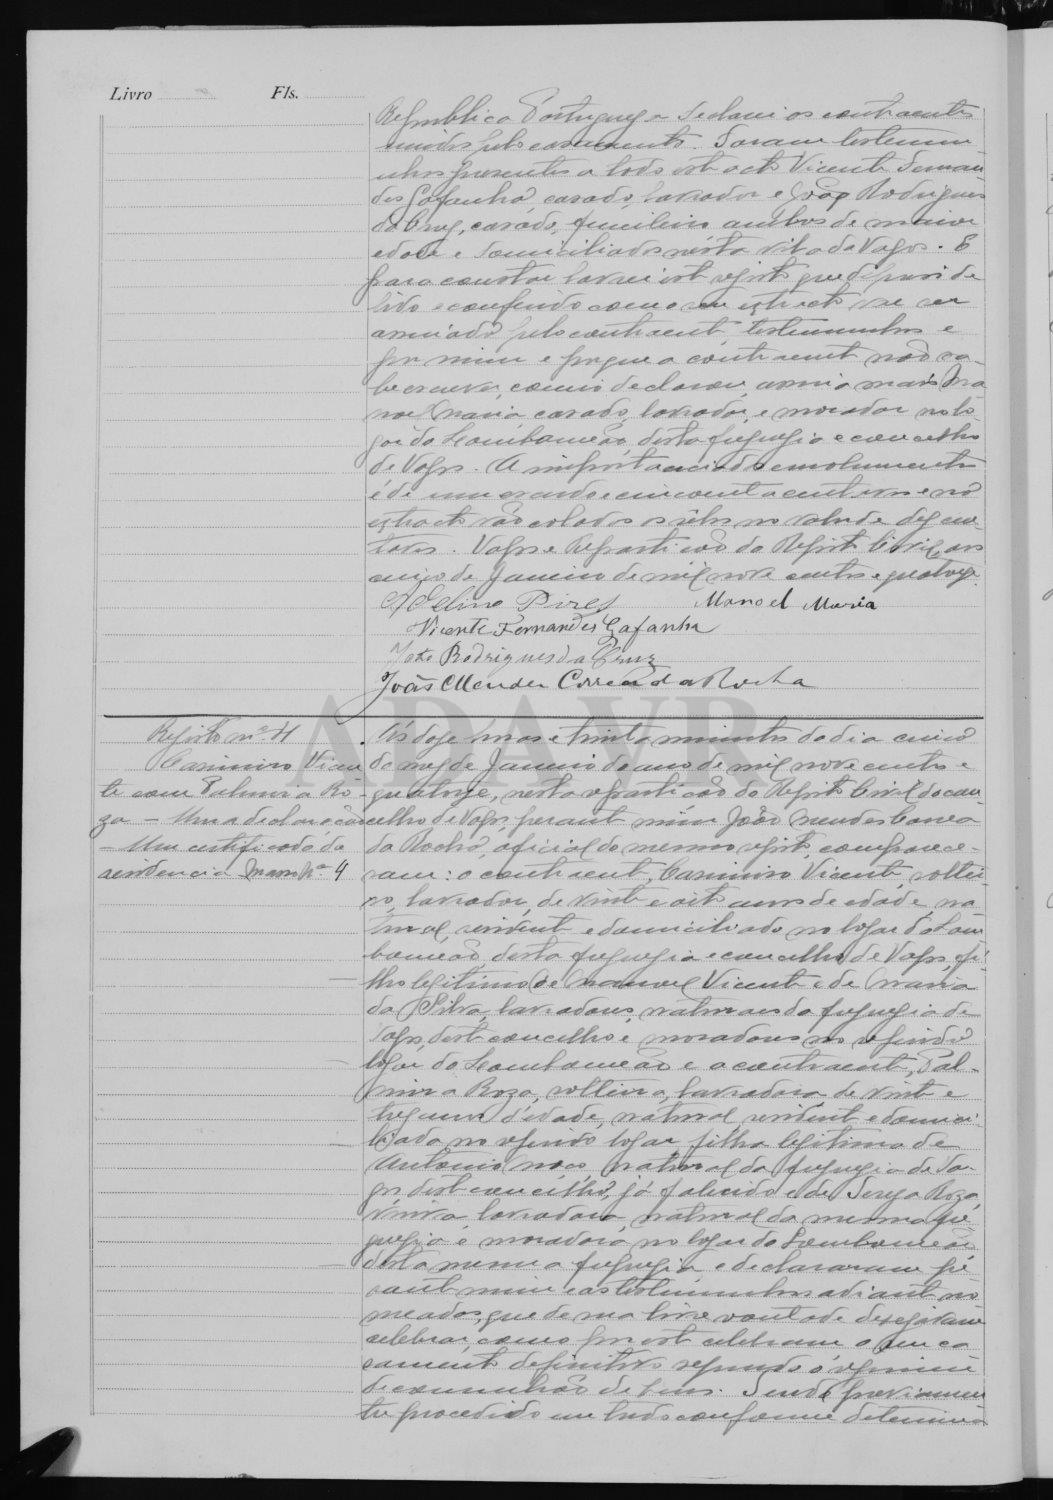 Livro Fls.
Republica Portugueza declarei os contraentes
unidos pelo casamento. Foram testemu-
nhas presentes a todo este acto Vicente Fernan-
des Gafanha, casado, lavrador e João Rodrigues
da Cruz, casado, funileiro ambos de maior
edade e domiciliados nésta vila de Vagos. E
para constar lavrei este registo que depois de
lido e conferido com o seu extracto vae ser
assinado pelo contraente, testemunhas e
por mim e porque a contraente não sa-
be escrever, como declarou, assina mais Ma-
noel Maria, casado, lavrador, e morador no lo-
gar do Lombomeão, desta freguezia e concelho
de Vagos. A importancia do emolumento
é de um escudo e cincoenta centavos e no
extracto vão colados os sêlos no valor de dez cen-
tavos. Vagos e Repartição do Registo Civil, aos
cinco de Janeiro de mil nove centos e quatorze.
Adelino Pires Manoel Maria
Vicente Fernandes Gafanha
João Rodrigues da Cruz
João Mendes Correa da Rocha
Registo nº 4
Casimiro Vicen-
te com Palmira Ro-
za - Uma declaração
- Um certificado de
residencia Maço Nº 4
Ás doze horas e trinta minutos do dia cinco
do mez de Janeiro do ano de mil nove centos e
quatorze, nesta repartição do Registo Civil do con-
celho de Vagos, perante mim João Mendes Correa
da Rocha, oficial do mesmo registo, comparece-
ram: o contraente, Casimiro Vicente, soltei-
ro, lavrador, de vinte e oito anos de edade, na-
tural, residente e domiciliado no logar do Lom-
bomeão, desta freguezia e concelho de Vagos, fi-
lho legitimo de Manoel Vicente e de Maria
da Silva, lavradores, naturaes da freguezia de
Vagos, deste concelho e moradores no referido
logar do Lombomeão e a contraente, Pal-
mira Roza, solteira, lavradora, de vinte e
trez anos d'edade, natural, residente e domici-
liada no referido logar, filha legitima de
Antonio natural da freguezia de Va-
gos, deste concelho, já falecido e de Roza,
viuva, lavradora, natural da mesma fre-
guezia e moradora no logar do Lombomeão
desta mesma freguezia e declararam pe-
rante mim e as testemunhas adiante no-
meadas, que de sua livre vontade desejavam
celebrar, como por este celebram o seu ca-
samento definitivo segundo o regimen
de comunhão de bens. Tendo previamen-
te procedido em tudo conforme determina
ADAVR